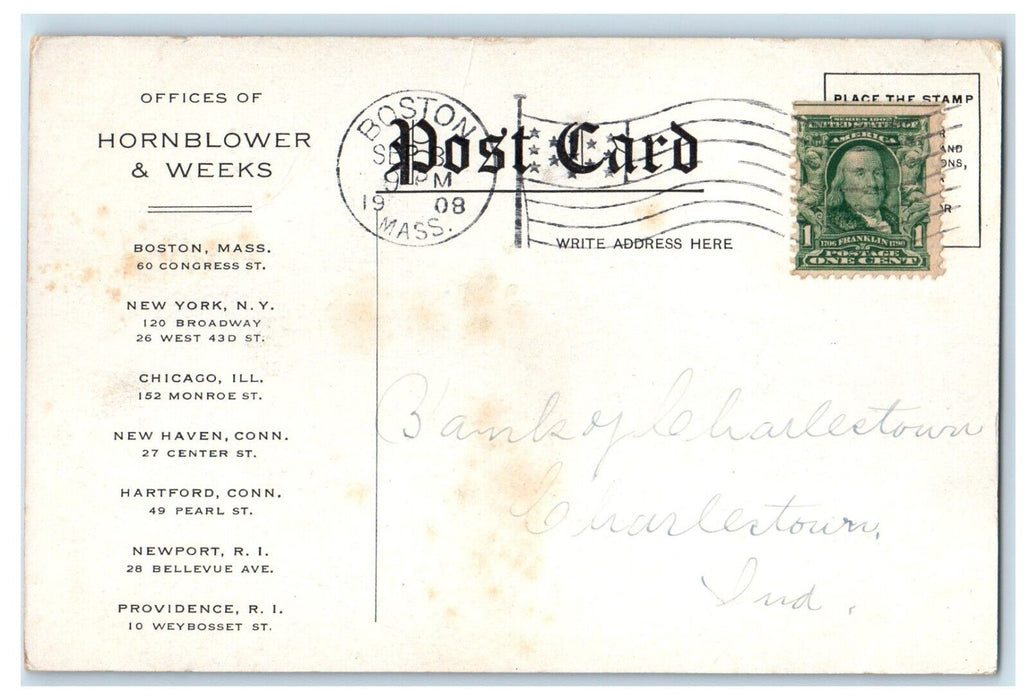 OFFICES OF
HORNBLOWER
& WEEKS
BOSTON, MASS.
60 CONGRESS ST.
NEW YORK, N.Y.
120 BROADWAY
26 WEST 43D ST.
CHICAGO, ILL.
152 MONROE ST.
NEW HAVEN, CONN.
27 CENTER ST.
HARTFORD, CONN.
49 PEARL ST.
NEWPORT, R. I.
28 BELLEVUE AVE.
PROVIDENCE, R. I.
10 WEYBOSSET ST.
BOSTON
SEP 8
9 PM
19 08
MASS.
Post Card
WRITE ADDRESS HERE
PLACE THE STAMP
AND
SERIES 1902
UNITED STATES OF
AMERICA
1 1
1706 FRANKLIN 1790
POSTAGE
ONE CENT
Bank of Charlestown
Charlestown,
Ind.